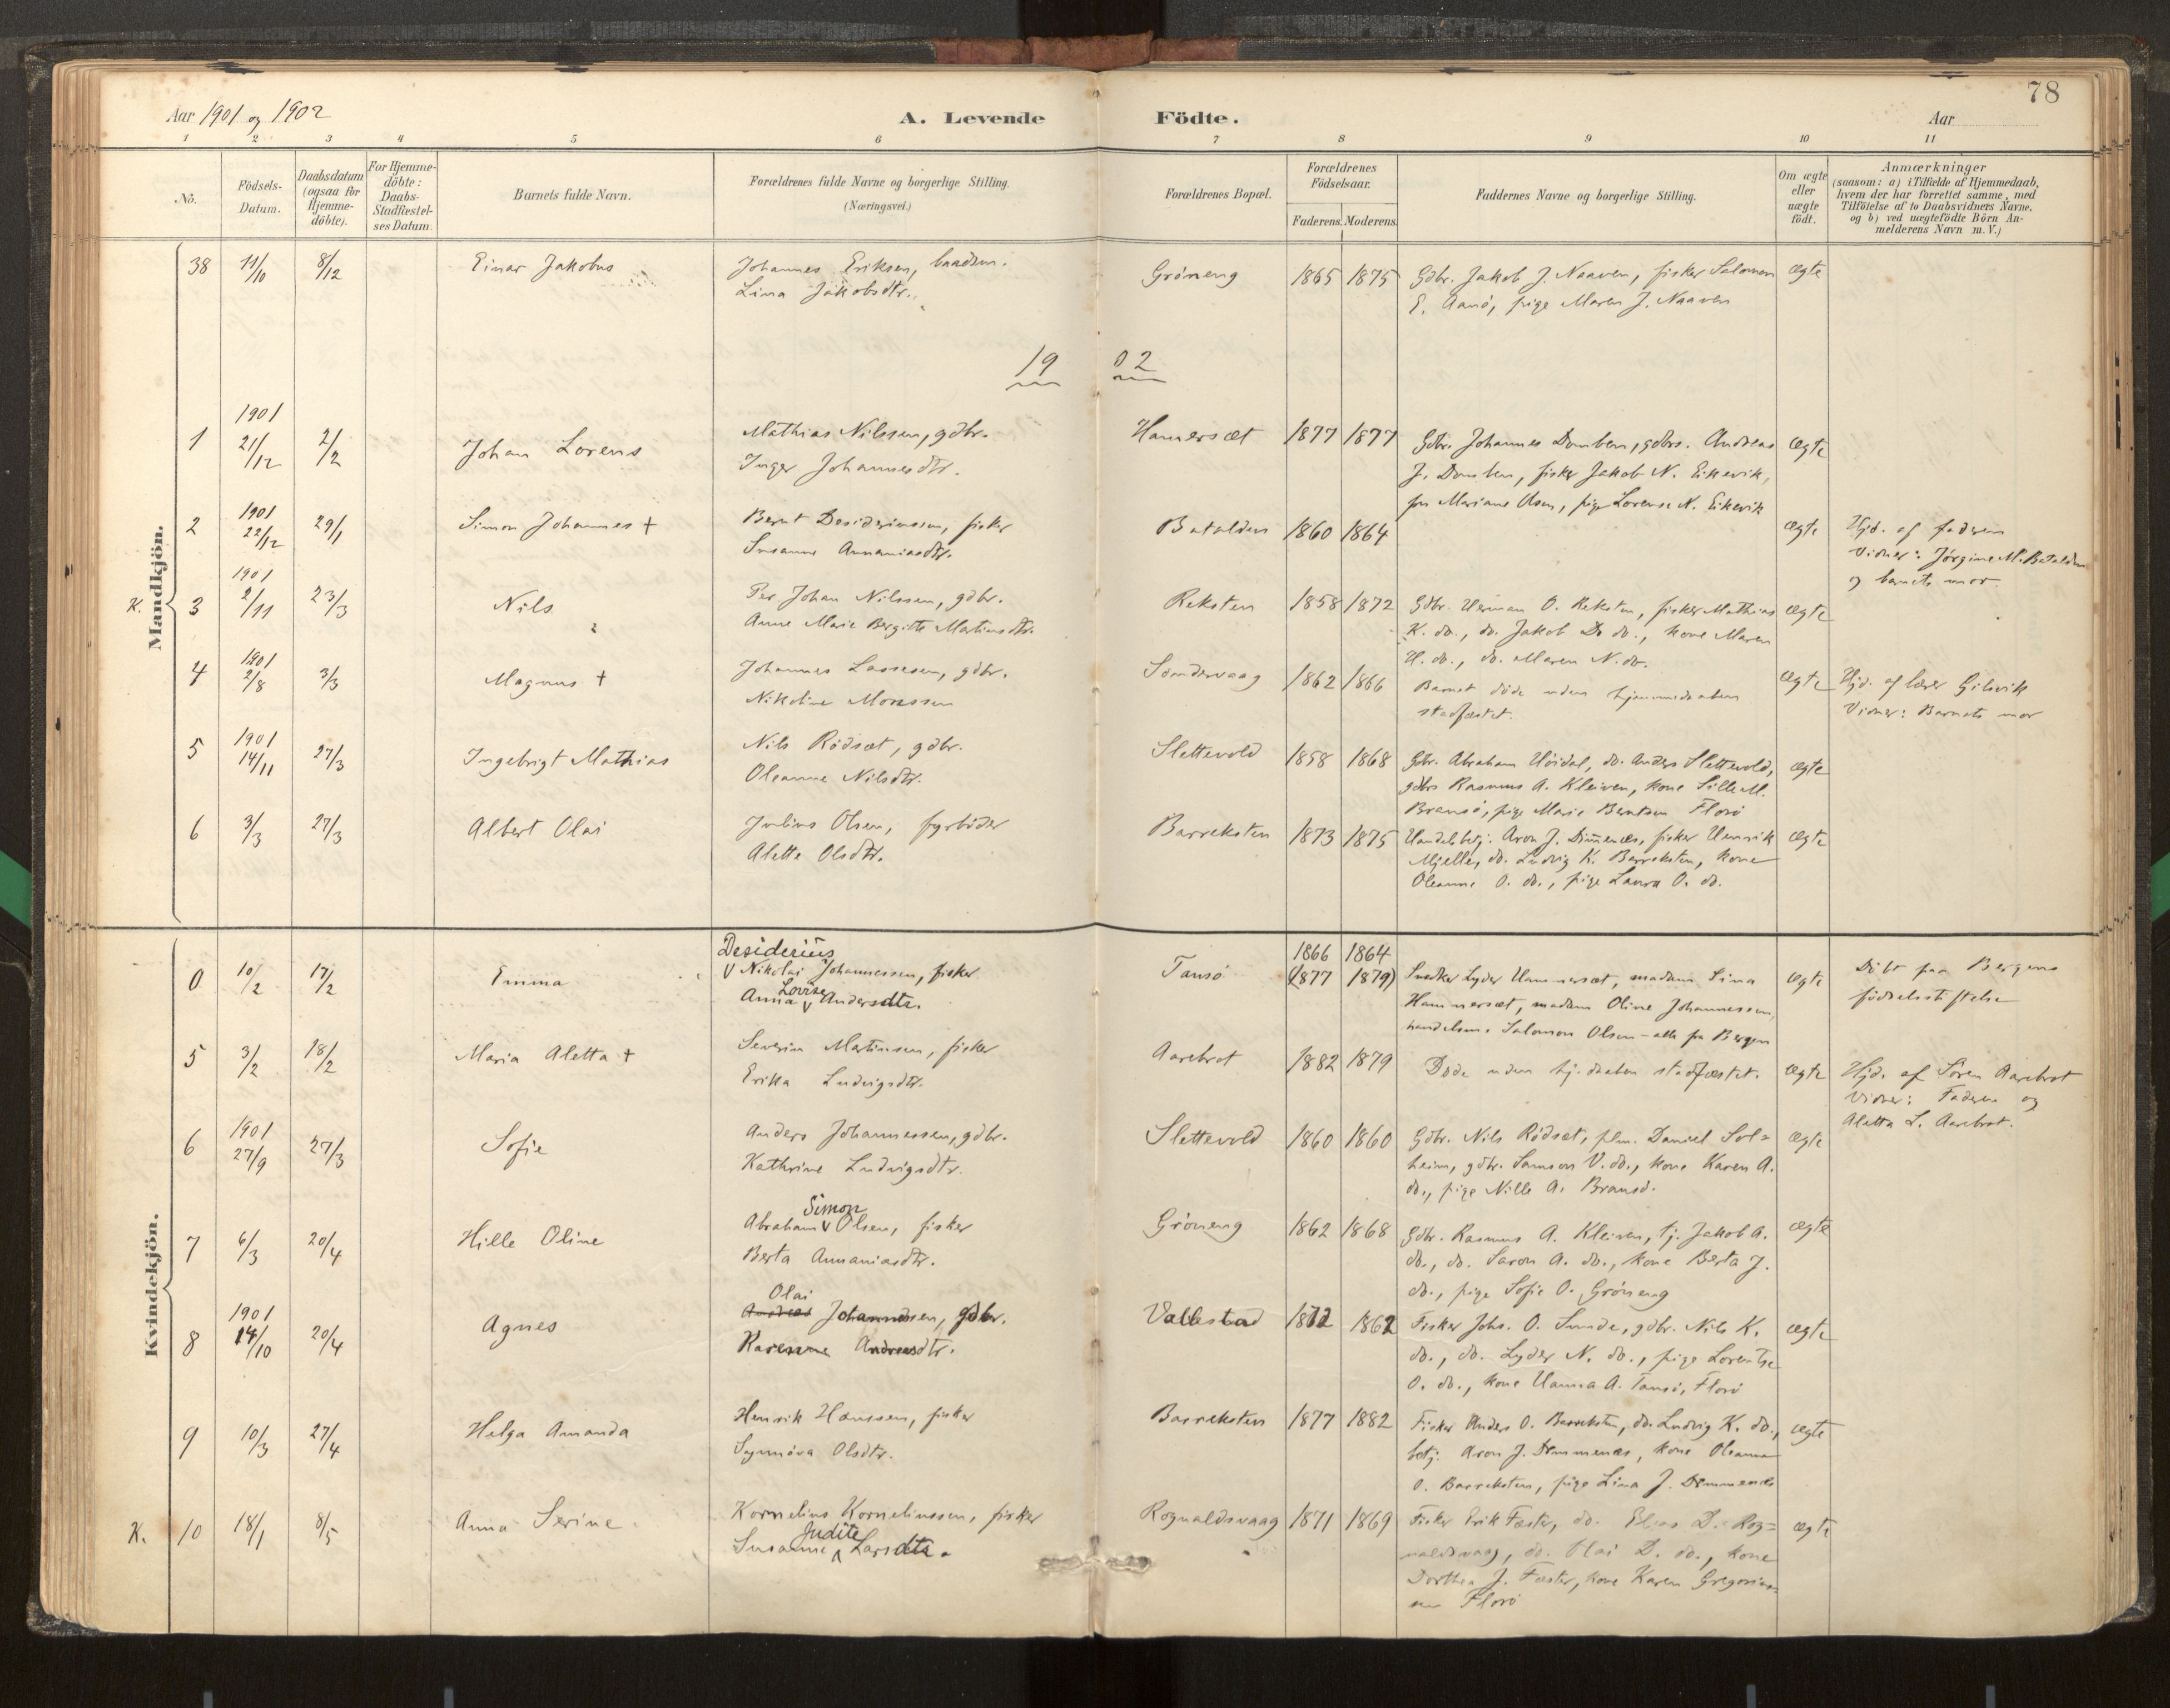 78
Aar 1901 og 1902
A. Levende Födte.
Aar
1 2 3 4 5 6 7 8 9 10 11
No.
Födsels-
Datum.
Daabsdatum
(ogsaa for
Hjemme-
döbte).
For Hjemme-
döbte:
Daabs-
Stadfæstel-
ses Datum.
Barnets fulde Navn.
Forældrenes fulde Navne og borgerlige Stilling.
(Næringsvei.)
Forældrenes Bopæl.
Forældrenes
Födselsaar.
Faderens. Moderens.
Faddernes Navne og borgerlige Stilling.
Om ægte
eller
uægte
født.
Anmærkninger
(saasom: a) i Tilfælde af Hjemmedaab,
hvem der har forrettet samme, med
Tilföielse af to Daabsvidners Navne,
og b) ved uægtefödte Börn An-
melderens Navn m. V.)
Mandkjön.
38 11/10 8/12 Einar Jakobus
Johannes Eriksen, baadsm.
Lina Jakobsdtr.
Gröneng 1865 1875
Gdbr. Jakob J. Naaven, fisker Salomon
E. Aanö, pige Maren J. Naaven
ægte
1902
1 1901
21/12 2/2 Johan Lorens
Mathias Nilssen, gdbr.
Inger Johannesdtr.
Hamersæt 1877 1877
Gdbr. Johannes Domben, gdbrs. Andreas
J. Domben, fisker Jakob N. Eikevik,
fru Mariane Olsen, pige Lorense N. Eikevik
ægte
2 1901
22/12 29/1 Simon Johannes +
Bernt Desideriussen, fisker
Susanne Annaniasdtr.
Batalden 1860 1864
ægte
Hjd. af faderen
Vidner: Jörgine M. Batalden
og barnets mor.
K. 3 1901
2/11 23/3 Nils
Per Johan Nilssen, gdbr.
Anne Marie Bergitte Martinsdtr.
Reksten 1858 1872
Gdbr. Herman O. Reksten, fisker Mathias
K. do., do. Jakob D. do., kone Maren
H. do., do. Maren N. do.
ægte
4 1901
2/8 3/3 Magnus +
Johannes Lassesen, gdbr.
Nikoline Monssen
Söndervaag 1862 1866
Barnet döde uden hjemmedaaben
stadfæstet.
ægte
Hjd. af lærer Gilsvik
Vidner: Barnets mor
5 1901
14/11 27/3 Ingebrigt Mathias
Nils Rödsæt, gdbr.
Oleanne Nilsdtr.
Slettevold 1858 1868
Gdbr. Abraham Höidal, do. Anders Slettevold,
gdbrs Rasmus A. Kleiven, kone Sille M.
Bransö, pige Marie Berntsen Florö
ægte
6 3/3 27/3 Albert Olai
Julius Olsen, fyrböder
Alette Olsdtr.
Barreksten 1873 1875
Handelsbetj. Aron J. Dimmenæs, fisker Henrik
Mjelle, do. Ludvig K. Barreksten, kone
Oleanne O. do., pige Laura O. do.
ægte
Kvindekjön.
0 10/2 17/2 Emma
Desiderius
Nikolai Johannessen, fisker
Lovise
Anna Andersdtr.
Tansö
1866 1864
(1877 1879)
Snedker Lyder Hammersæt, madam Lina
Hammersæt, madam Oline Johannessen,
handelsm. Salomon Olsen - alle fra Bergen
ægte
Döbt paa Bergens
födselsstiftelse
5 3/2 18/2 Maria Aletta +
Severin Martinsen, fisker
Erikka Ludvigsdtr.
Aarebrot 1882 1879
Döde uden hj.daaben stadfæstet.
ægte
Hjd. af Sören Aarebrot
Vidner: Faderen og
Aletta L. Aarebrot.
6 1901
27/9 27/3 Sofie
Anders Johannessen, gdbr.
Kathrine Ludvigsdtr.
Slettevold 1860 1860
Gdbr. Nils Rödsæt, plm. Daniel Sol-
heim, gdbr. Samson V. do., kone Karen A.
do., pige Nille A. Bransö.
ægte
7 6/3 20/4 Hille Oline
Simon
Abraham Olsen, fisker
Berta Annaniasdtr.
Gröneng 1862 1868
Gdbr. Rasmus A. Kleiven, tj. Jakob A.
do., do. Saron A. do., kone Berta J.
do., pige Sofie O. Gröneng
ægte
8 1901
14/10 20/4 Agnes
Olai
Andreas Johannesen, gdbr.
Karenne Andreasdtr.
Vallestad 1872 1862
Fisker Johs. O. Sunde, gdbr. Nils K.
do., do. Lyder N. do., pige Lorentse
O. do., kone Hanna A. Tansö, Florö
ægte
9 10/3 27/4 Helga Amanda
Henrik Hanssen, fisker
Synnöva Olsdtr.
Barreksten 1877 1882
Fisker Anders O. Barreksten, do. Ludvig K. do.,
betj. Aron J. Dimmenæs, kone Oleanne
O. Barreksten, pige Lina J. Dimmenæs
ægte
K. 10 18/1 8/5 Anna Serine
Kornelius Korneliussen, fisker
Judite
Susanne Larsdtr.
Rognaldsvaag 1871 1869
Fisker Erik Fæster, do. Elias D. Rog-
naldsvaag, do. Olai D. do., kone
Dorthea J. Fæster, kone Karen Gregorius-
sen Florö
ægte